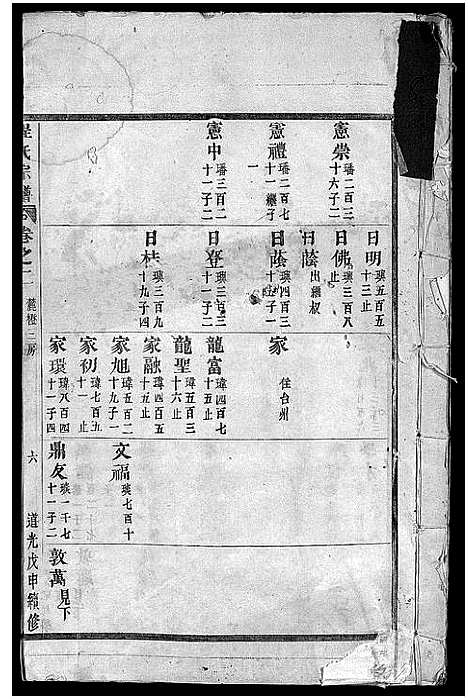 憲崇 璠二百三十六子二
憲禮 璠二百七十一繼子一
憲中 璠三百二十一子二
日明 瑛五百五十三止
日佛 瑛三百八止
日蔭 出繼叔
日蔭 瑛四百三十子一
日登 瑛三百三十一子二
日桂 瑛三百九十九子四
家 住台州
龍富 瑋四百七十五止
龍聖 瑋五百三十六止
家融 瑋四百五十五止
家旭 瑋五百二十九子一
家初 瑋七百九十一止
家環 瑋八百四十一子四
文福 琰七百十
鼎友 琰一千七十一子二
敦萬 見下
氏宗譜 卷之二 三房 六 道光戊申續修